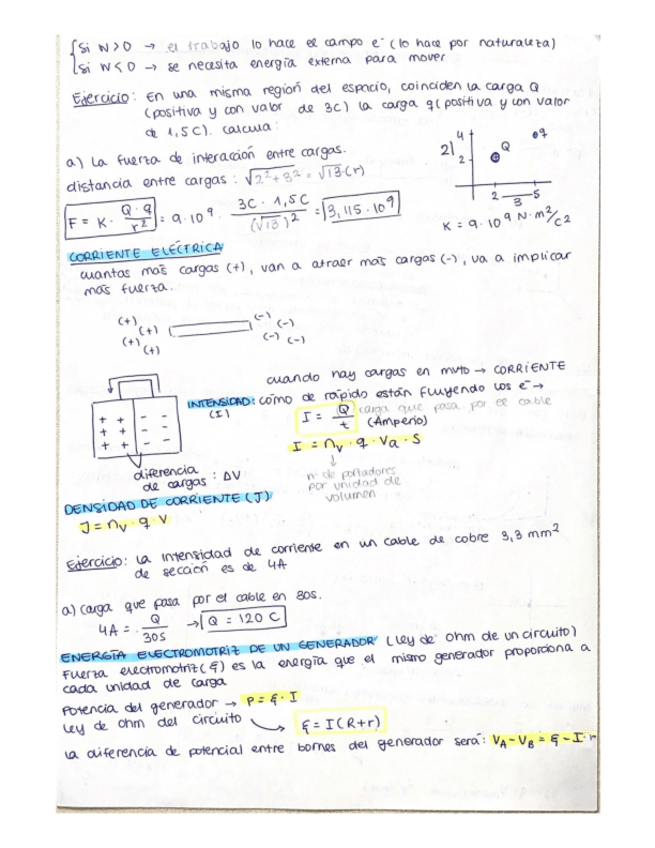 Si W>0 → el trabajo lo hace el campo e⁻ (lo hace por naturaleza)
Si W<0 → se necesita energía externa para mover
Ejercicio: En una misma región del espacio, coinciden la carga Q
(positiva y con valor de 3C) la carga q (positiva y con valor
de 1,5C). Calcula:
a) La fuerza de interacción entre cargas.
distancia entre cargas: √2²+3² = √13 (r)
F = K · Q·q/r² = 9·10⁹ · 3C · 1,5C/(√13)² = 3,115·10⁹
2| 4 2 Q q
2 3 5
K = 9·10⁹ N·m²/C²
CORRIENTE ELÉCTRICA
cuantas más cargas (+), van a atraer más cargas (-), va a implicar
más fuerza.
(+) (+) (+) (+) (-) (-) (-) (-)
cuando hay cargas en mvto → CORRIENTE
INTENSIDAD: cómo de rápido están fluyendo los e⁻ →
(I) I = Q/t carga que pasa por el cable
(Amperio)
I = nᵥ · q · Va · S
+ + - -
+ + - -
+ + - -
diferencia
de cargas : ΔV
nº de portadores
por unidad de
volumen
DENSIDAD DE CORRIENTE (J)
J = nᵥ · q · v
Ejercicio: La intensidad de corriente en un cable de cobre 3,3 mm²
de sección es de 4A
a) carga que pasa por el cable en 30s.
4A = Q/30s → Q = 120 C
ENERGÍA ELECTROMOTRIZ DE UN GENERADOR (Ley de Ohm de un circuito)
Fuerza electromotriz (ξ) es la energía que el mismo generador proporciona a
cada unidad de carga
Potencia del generador → P = ξ · I
Ley de ohm del circuito → ξ = I (R+r)
La diferencia de potencial entre bornes del generador será: V_A - V_B = ξ - I · r